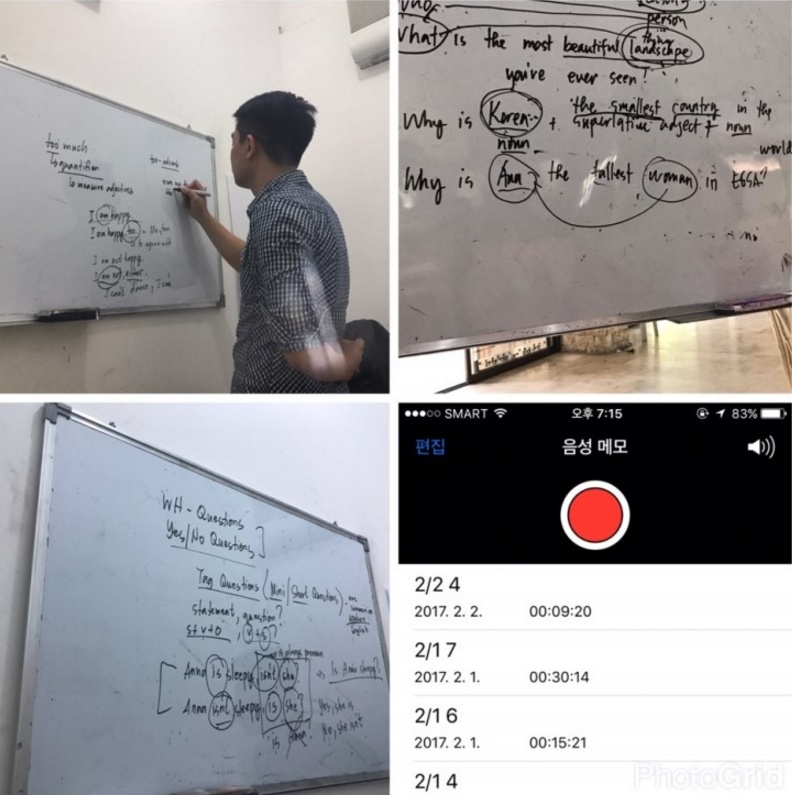 too much
quantifier
to measure adjectives
I am happy
I am happy too
to agree with
I am not happy
I am not, either.
I can't dance, I can
person
What is the most beautiful thing landscape
you've ever seen?
Why is Korea + the smallest country in the
noun superlative adject + noun world
Why is Ann the tallest woman in EGSA?
WH-Questions
Yes/No Questions
Tag Questions (Mini/Short Questions)
statement, question?
s+v+o, v+s?
always pronoun
Anna is sleepy, isn't she? → Is Anna sleepy?
Anna isn't sleepy, is she? Yes, she is
is No, she isn't
SMART 오후 7:15 83%
편집 음성 메모
2/2 4
2017. 2. 2. 00:09:20
2/1 7
2017. 2. 1. 00:30:14
2/1 6
2017. 2. 1. 00:15:21
2/1 4
PhotoGrid